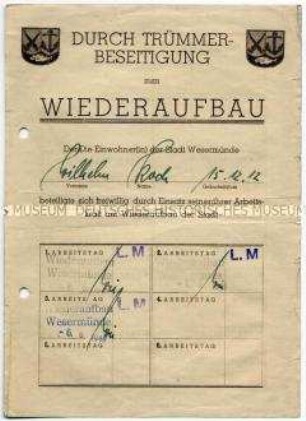 DURCH TRÜMMER-
BESEITIGUNG
ZUM
WIEDERAUFBAU
Der/Die Einwohner(in) der Stadt Wesermünde
Wilhelm Koch 15.12.12
Vorname Name Geburtsdatum
beteiligte sich freiwillig durch Einsatz seiner/ihrer Arbeits-
kraft am Wiederaufbau der Stadt
MUSEUM DEUTSCHES HISTORISCHES MUSEUM
1. ARBEITSTAG L.M
L.M
Wiederaufbau
ARBEITSTAG L.M
4. ARBEITSTAG
Wiederaufbau
Wesermünde
5. ARBEITSTAG
6. ARBEITSTAG